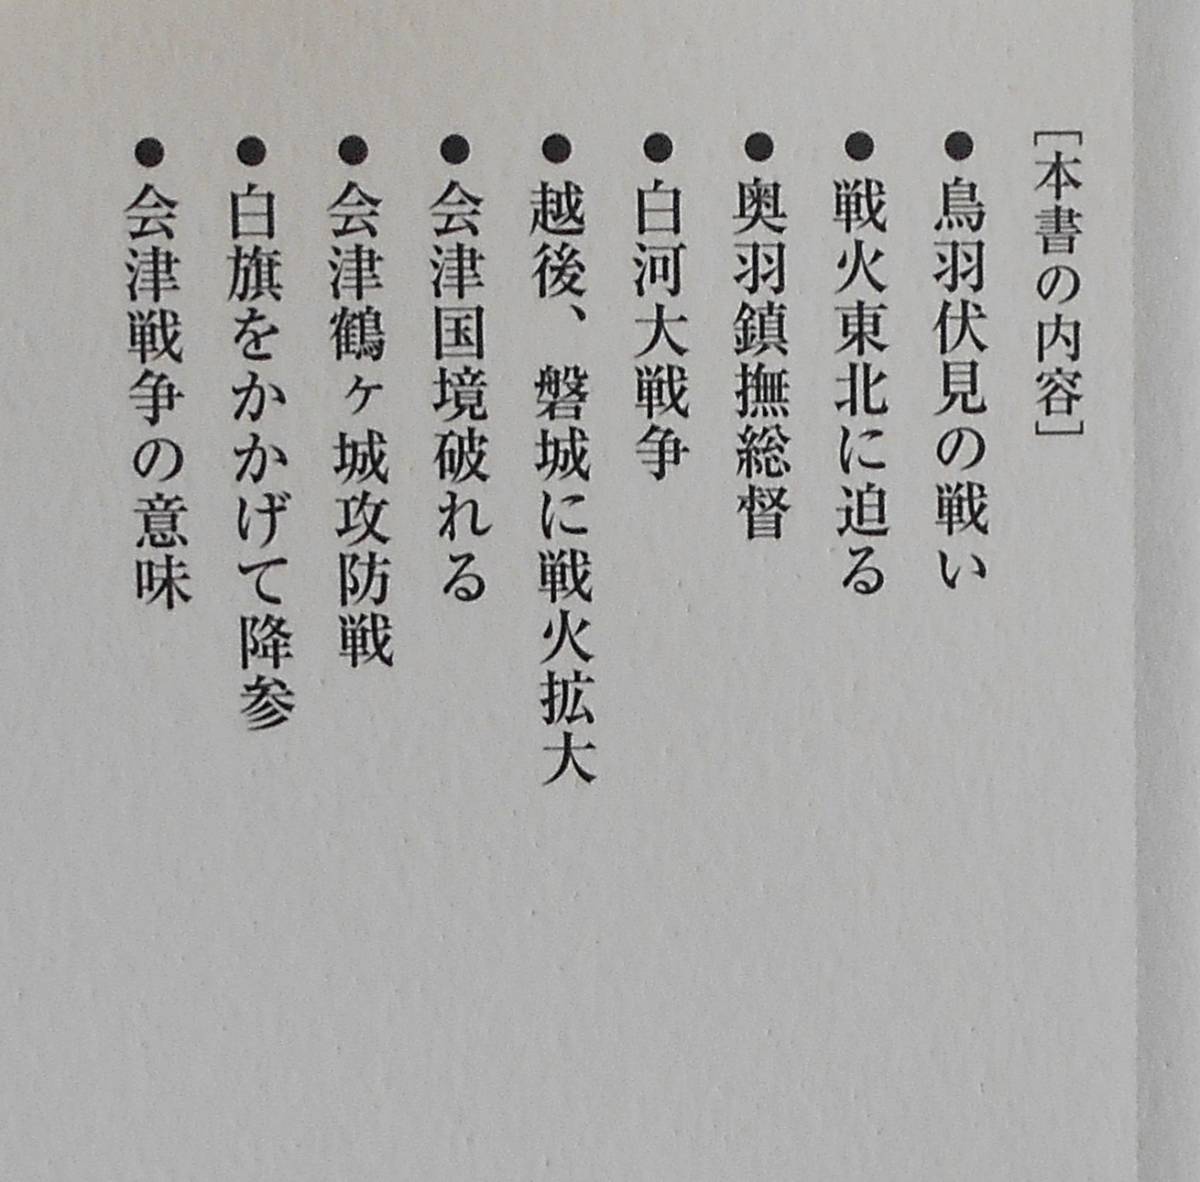 ［本書の内容］
●鳥羽伏見の戦い
●戦火東北に迫る
●奥羽鎮撫総督
●白河大戦争
●越後、磐城に戦火拡大
●会津国境破れる
●会津鶴ヶ城攻防戦
●白旗をかかげて降参
●会津戦争の意味